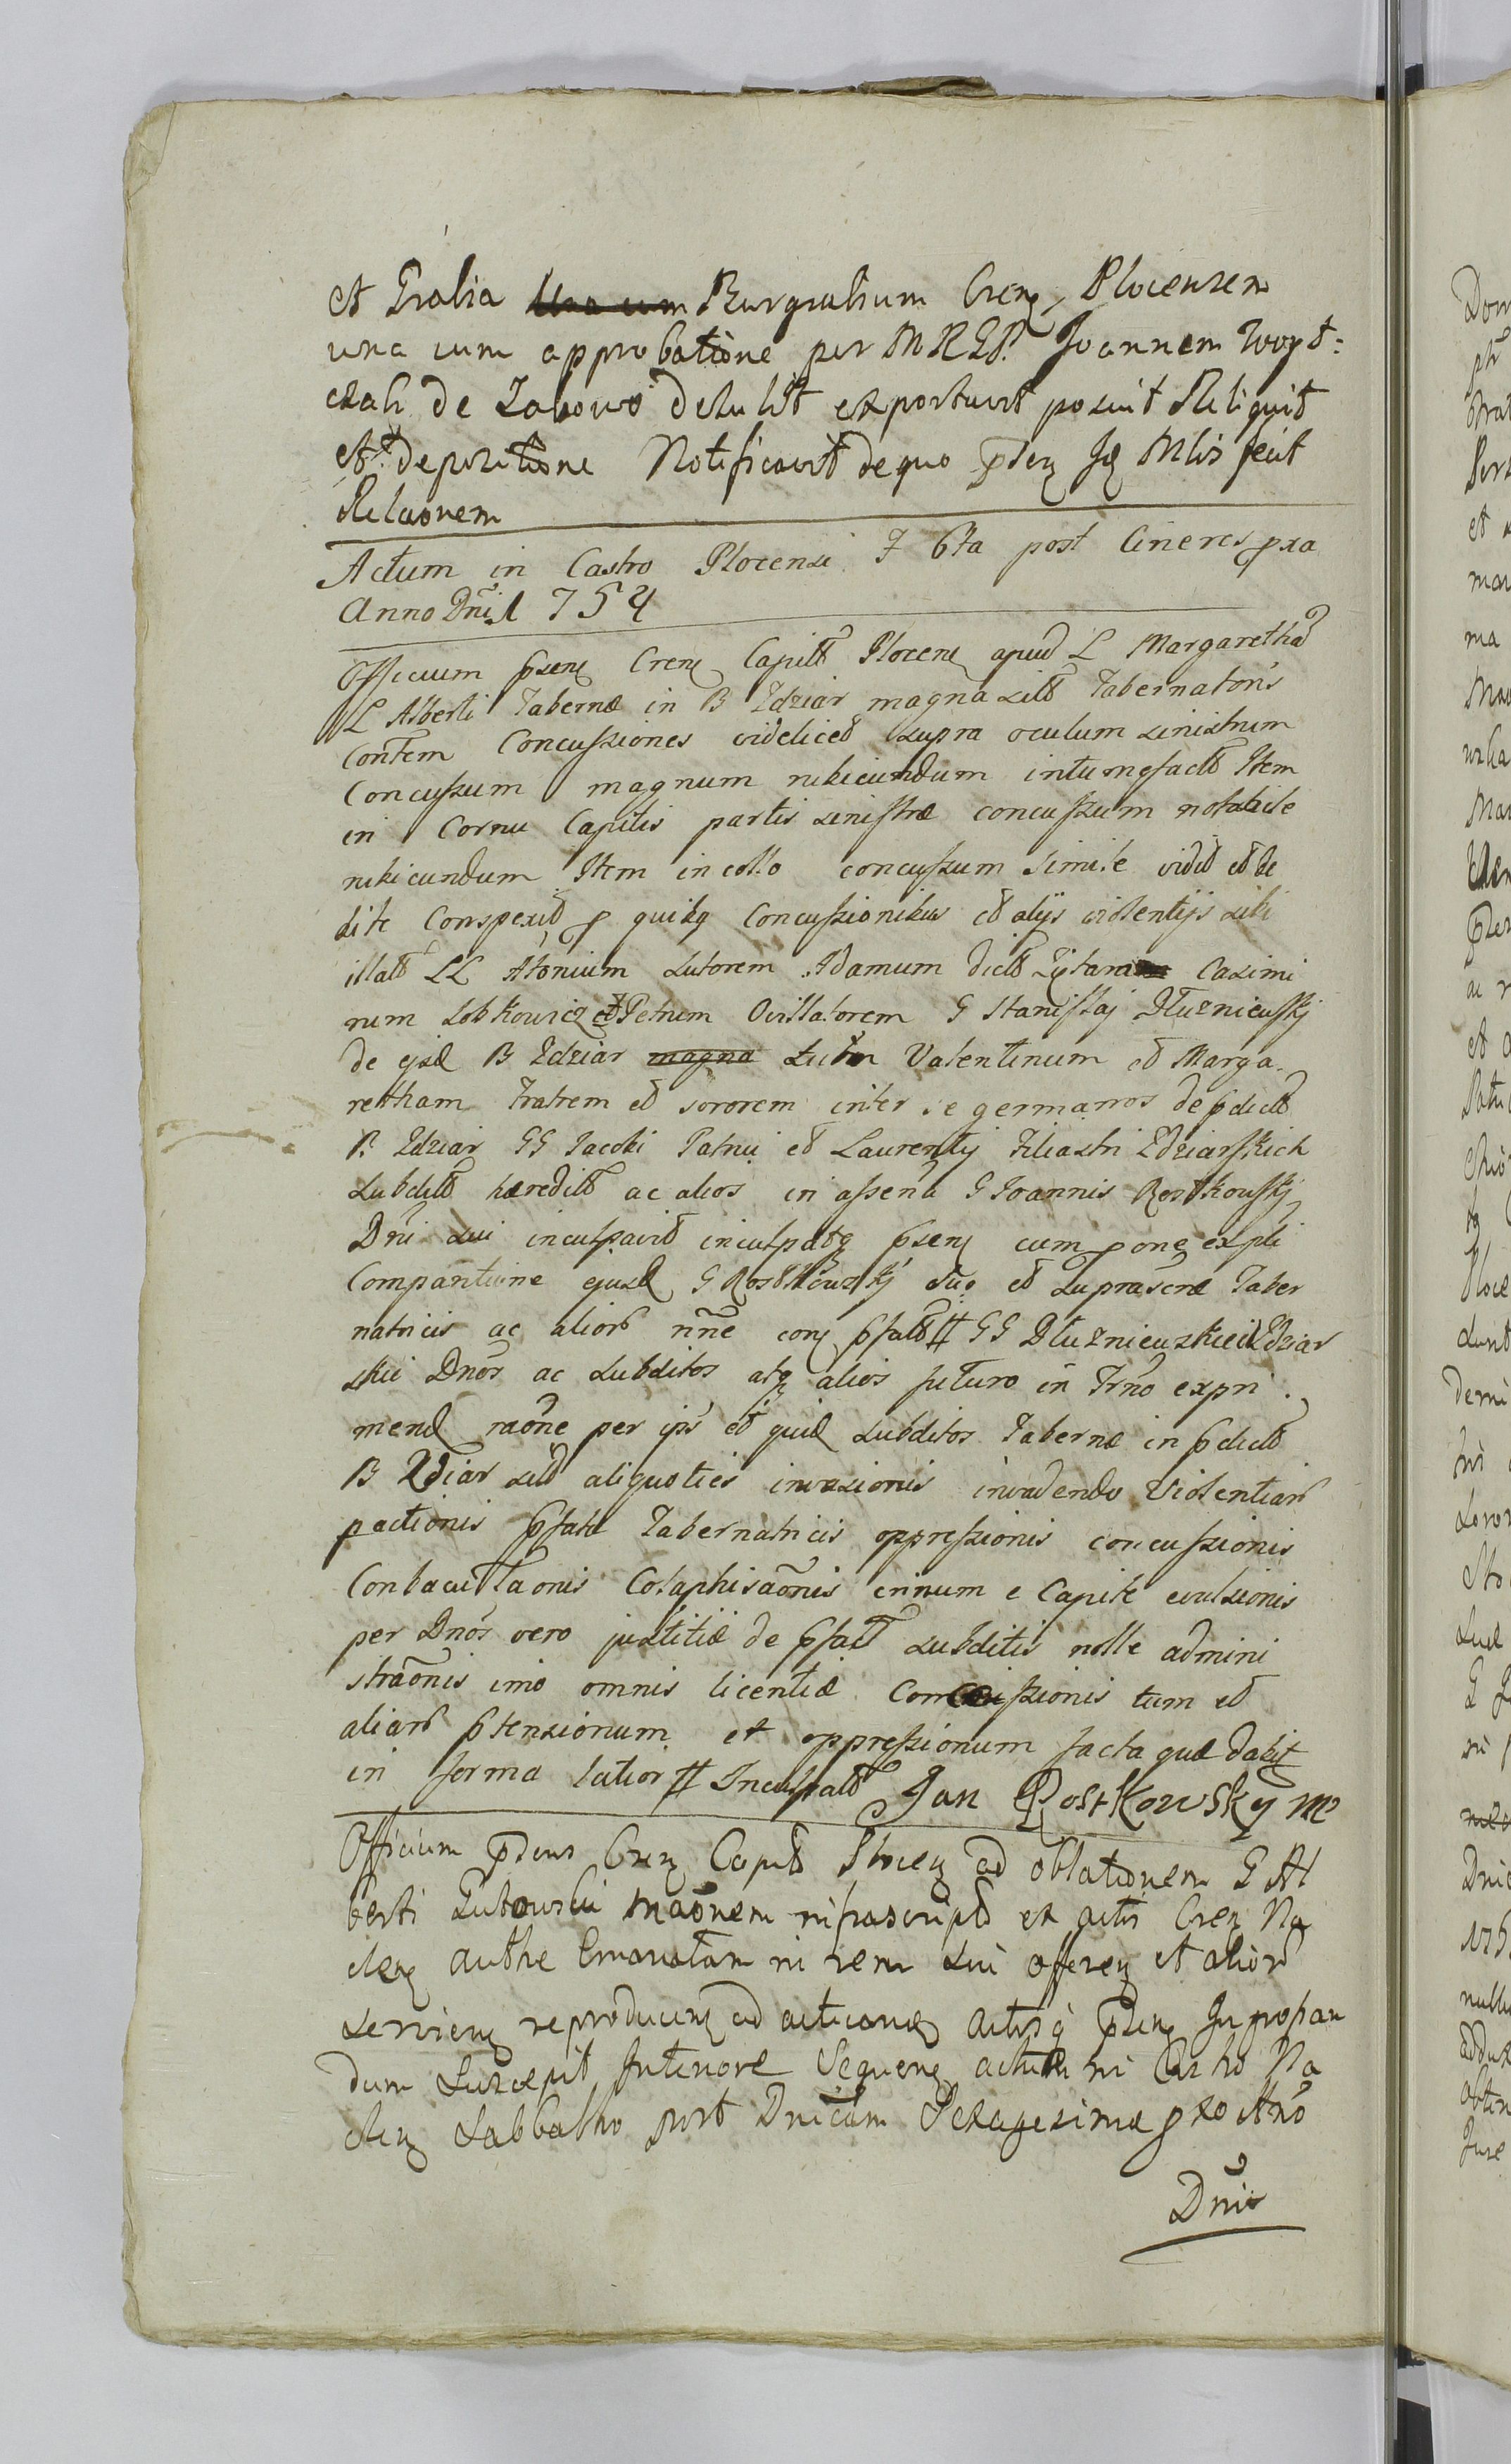 et Gralia Una cum Burgrabium Cren, Plocensem
una cum approbatione per MRGP. Joannem Woyt=
czak de Zabowo detulit exportavit posuit Reliquit
et depositione Notificavit de quo pnsen Jq Mlis fecit
Relaonem
Actum in Castro Plocensi F 6ta post Cineres pxa
Anno Dni 1754
Officium psens Crens Capitt Plocens apud L Margaretha
L Alberti Tabernæ in B Zdziar magna sitt Tabernatoris
Contem Concussiones videlicet supra oculum sinistrum
Concussum magnum rubicundum intumefactt Item
in Cornu Capitis partis sinistræ concussum notabile
rubicundum Item in collo concussum simile vidit et be
dite Conspexit p quibq Concussionibus et alijs violentijs sibi
illatt LL Atonium sutorem Adamum dictt Casimi
rum Sobkowicz et Petrum Ovillatorem G Stanislaj Dłuznieuskj
de ejsd B Zdziar magna Subm Valentinum et Marga
retham Fratrem et sororem inter se germanos de pdictt
B Zdziar GG Jacobi Patrui et Laurentij Filiastri Zdziarskich
Subditt hæreditt ac alios in assena G Joannis Rostkouskj
Dni sui inculpavit inculpatq psens cum pone expli
Comparitione ejusd G Rostkouskj suo et Suprascræ Taber
natricis ac aliorr nne cons psatt # GG Dłuznieuskie Zdziar
skie Dnos ac Subditos atq alios futuro in Trno expri
mend raone per ips et quid Subditos Tabernæ in pdictt
B Zdziar sitt aliquoties invasionis invadendo Violentiarr
pactionis psatæ Tabernatricis oppressionis concussionis
Conbacultaonis Colaphisaonis crinum e Capite evulsionis
per Dnos vero justitiæ de psatt Subditis nolle admini
straonis imo omnis licentiæ Concissionis tum et
aliarr ptensionum et oppressionum facta quæ dabit
in forma latior # Inculpatt Jan Rostkowsky mp
Officium psens Cren Capitt Plocen ad oblationem G Al
berti Gutowski maonem infrascriptt ex actis Cren Na
clen authe Emanatam in rem sui offeren et aliorr
servien reproducen ad acticand Actisq psen Ingrossan
dum Suscepit Intenore Sequens actum in Castro Na
clen Sabbatho post Dnicam Sexagesimæ pxo Ano
Dni